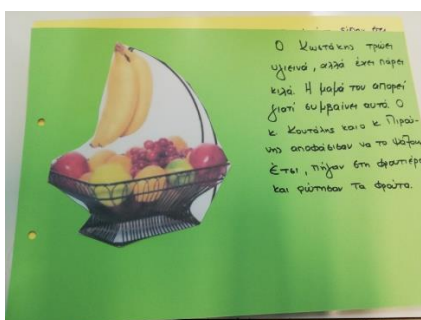 Ο Κωστάκης τρώει
υγιεινά, αλλά έχει πάρει
κιλά. Η μαμά του απορεί
γιατί συμβαίνει αυτό. Ο
κ Κουτάλης και ο κ Πιρού-
νης αποφάσισαν να το ψάξουν.
Έτσι, πήγαν στη φρουτιέρα
και ρώτησαν τα φρούτα.